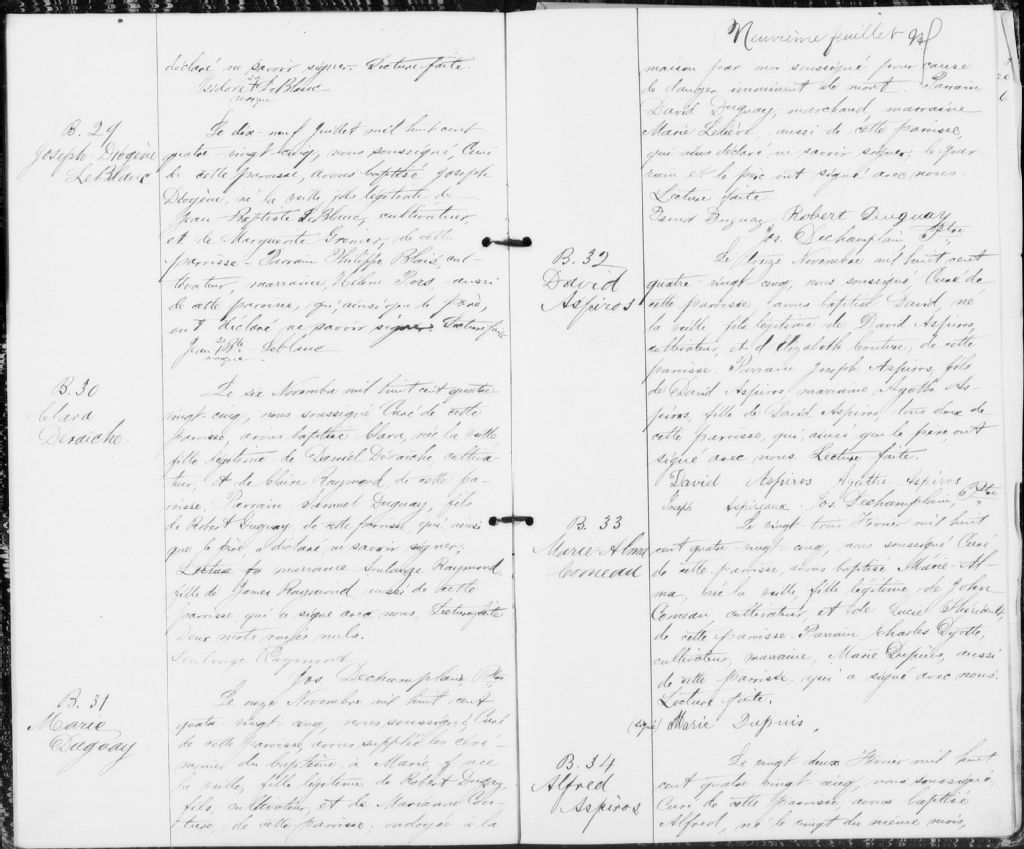 déclaré ne savoir signer. Lecture faite.
Isidore + LeBlanc
sa
marque
B. 29
Joseph-Diogène
LeBlanc
Le dix-neuf Juillet mil huit cent
quatre-vingt-cinq, nous soussigné, Curé
de cette paroisse, avons baptisé Joseph
Diogène, né la veille, fils légitime de
Jean-Baptiste LeBlanc, cultivateur,
et de Marguerite Grenier, de cette
paroisse. Parrain Philippe Blais, cul-
tivateur, marraine, Hélène aussi
de cette paroisse, qui, ainsi que le père,
ont déclaré ne savoir signer. Lecture faite
Jean Bte Leblanc
marque
B. 30
Clara
Déraiche.
Le six Novembre mil huit cent quatre
vingt-cinq, nous soussigné Curé de cette
paroisse, avons baptisé Clara, née la veille
fille légitime de Daniel Déraiche, cultiva-
teur, et de Claire Raymond, de cette pa-
roisse. Parrain Samuel Duguay, fils
de Robert Duguay, de cette paroisse, qui, ainsi
que le père, a déclaré ne savoir signer;
Lecture fa marraine Soulange Raymond,
fille de James Raymond, aussi de cette
paroisse, qui a signé avec nous. Lecture faite
Deux mots rayés nuls.
Soulange Raymond
Jos Dechamplain Ptre
B. 31
Marie
Duguay
Le onze Novembre mil huit cent
quatre-vingt-cinq, nous soussigné, Curé
de cette paroisse, avons suppléé les céré-
monies du baptême, à Marie, née
la veille, fille légitime de Robert Duguay,
fils, cultivateur, et de Marianne Cou-
ture, de cette paroisse; ondoyée à la
Neuvième feuillet
maison par moi soussigné pour cause
de danger imminent de mort. Parrain
David Duguay, marchand, marraine
Marie Lelièvre, aussi de cette paroisse,
qui a déclaré ne savoir signer; le par-
rain et le père ont signé avec nous.
Lecture faite.
David Duguay Robert Duguay
Jos. Dechamplain Ptre
B. 32
David
Aspiros
Le onze Novembre mil huit cent
quatre-vingt-cinq, nous soussigné, Curé de
cette paroisse avons baptisé David, né
la veille, fils légitime de David Aspiros,
cultivateur, et d'Elizabeth Couture, de cette
paroisse. Parrain Joseph Aspiros, fils
de David Aspiros, marraine, Agathe As-
piros, fille de David Aspiros, tous deux de
cette paroisse, qui, ainsi que le père, ont
signé avec nous. Lecture faite.
David Aspiros Agathe Aspiros
Joseph Aspireaux. Jos. Dechamplain, Ptre
B. 33
Marie-Alma
Comeau
Le vingt-trois Février mil huit
cent quatre-vingt-cinq, nous soussigné Curé
de cette paroisse, avons baptisé Marie-Al-
ma, née la veille, fille légitime de John
Comeau cultivateur, et de Lucie
de cette paroisse. Parrain Charles Dyotte,
cultivateur, marraine, Marie Dupuis, aussi
de cette paroisse, qui a signé avec nous.
Lecture faite.
(signé) Marie Dupuis,
B. 34
Alfred
Aspiros
Le vingt-deux Février mil huit
cent quatre-vingt-cinq, nous soussigné
Curé de cette paroisse, avons baptisé
Alfred, né le vingt du même mois,